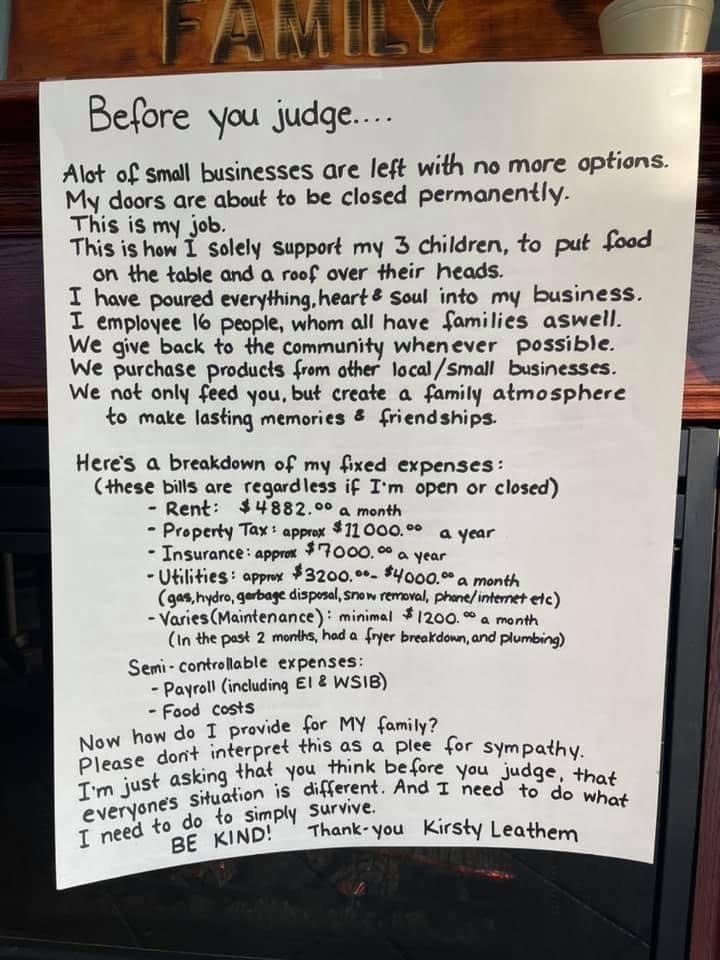 FAMILY
Before you judge....
Alot of small businesses are left with no more options.
My doors are about to be closed permanently.
This is my job.
This is how I solely support my 3 children, to put food
on the table and a roof over their heads.
I have poured everything, heart & soul into my business.
I employee 16 people, whom all have families aswell.
We give back to the community whenever possible.
We purchase products from other local/small businesses.
We not only feed you, but create a family atmosphere
to make lasting memories & friendships.
Here's a breakdown of my fixed expenses:
(these bills are regardless if I'm open or closed)
- Rent: $4882.00 a month
- Property Tax: approx $11000.00 a year
- Insurance: approx $7000.00 a year
- Utilities: approx $3200.00 - $4000.00 a month
(gas, hydro, garbage disposal, snow removal, phone/internet etc)
- Varies (Maintenance): minimal $1200.00 a month
(In the past 2 months, had a fryer breakdown, and plumbing)
Semi-controllable expenses:
- Payroll (including EI & WSIB)
- Food costs
Now how do I provide for MY family?
Please don't interpret this as a plee for sympathy.
I'm just asking that you think before you judge, that
everyone's situation is different. And I need to do what
I need to do to simply survive.
BE KIND! Thank-you Kirsty Leathem